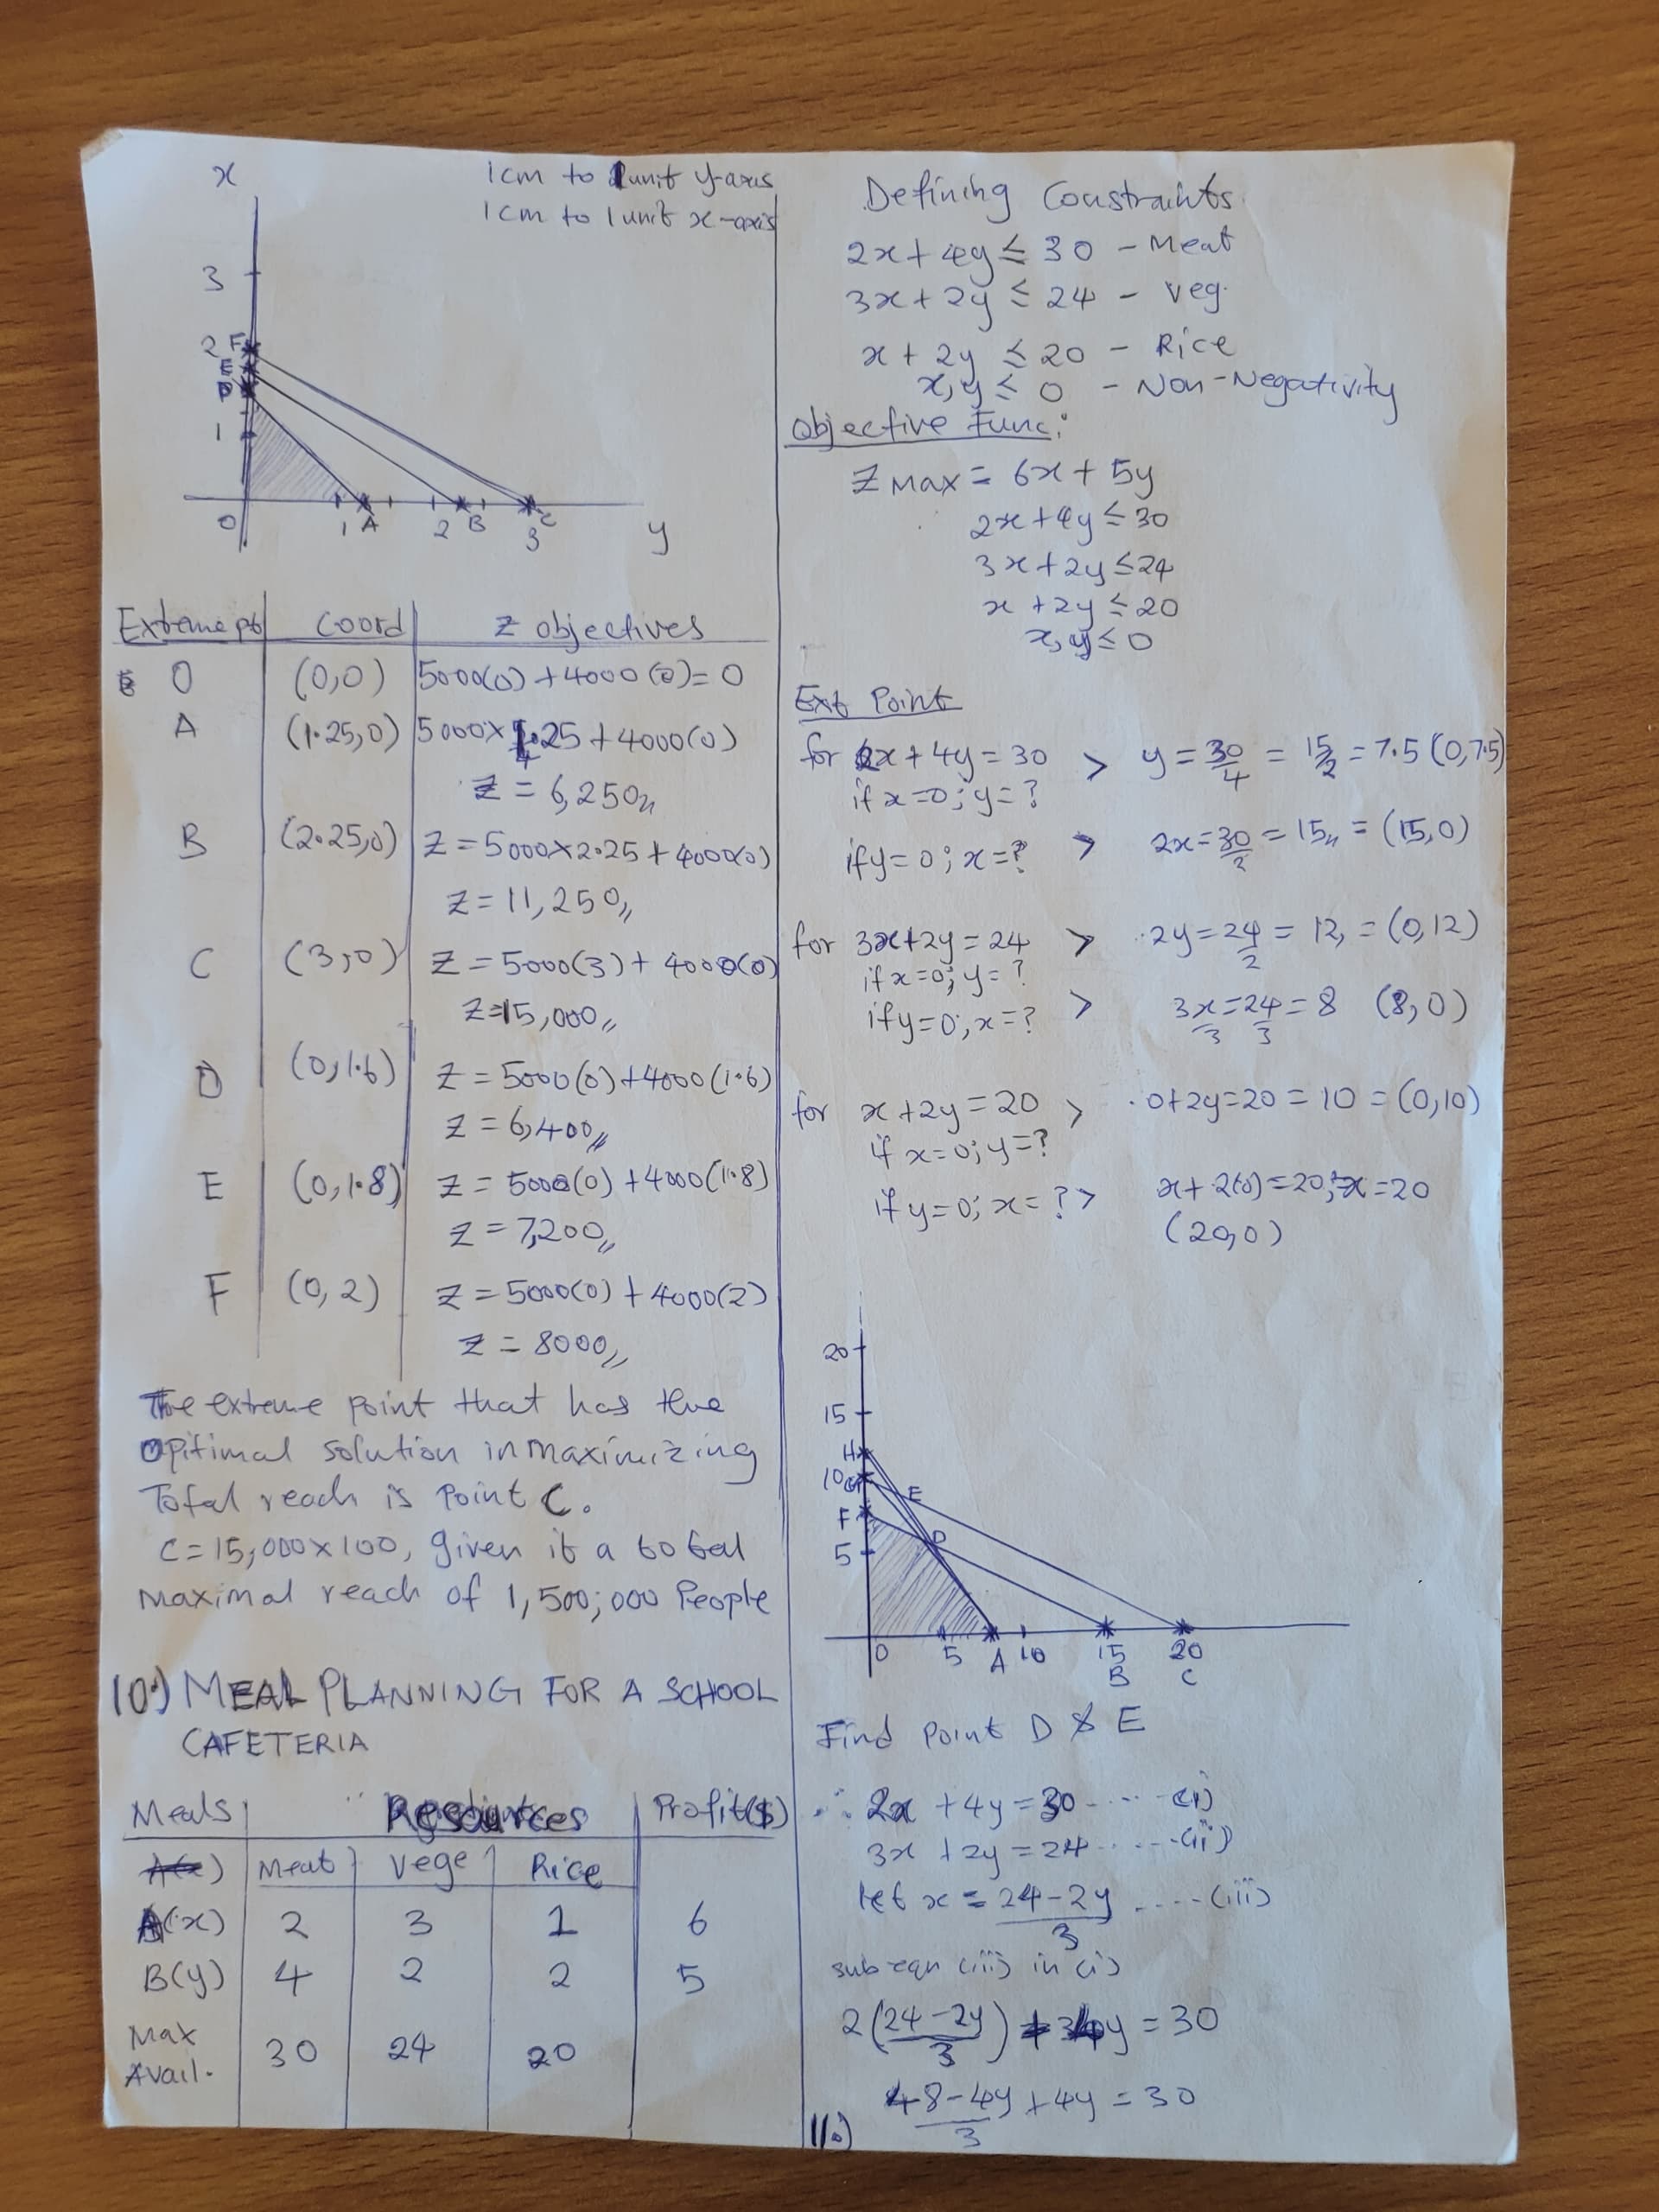 x
1cm to 1unit y-axis
1cm to 1unit x-axis
3
2 F
E
D
1
0 1 A 2 B 3 C y
Extreme pt Coord Z objectives
O (0,0) 5000(0) + 4000(0) = 0
A (1.25,0) 5000x1.25 + 4000(0)
Z = 6,250,,
B (2.25,0) Z = 5000x2.25 + 4000(0)
Z = 11,250,,
C (3,0) Z = 5000(3) + 4000(0)
Z=15,000,,
D (0,1.6) Z = 5000(0) + 4000(1.6)
Z = 6,400,,
E (0,1.8) Z = 5000(0) + 4000(1.8)
Z = 7,200,,
F (0,2) Z = 5000(0) + 4000(2)
Z = 8000,,
The extreme point that has the
Opitimal solution in maximizing
Total reach is Point C.
C = 15,000x100, given it a total
maximal reach of 1,500,000 People
10.) MEAL PLANNING FOR A SCHOOL
CAFETERIA
Meals Resources Profit($)
Meat Vege Rice
A(x) 2 3 1 6
B(y) 4 2 2 5
Max
Avail. 30 24 20
Defining Constraints
2x + 4y ≤ 30 - Meat
3x + 2y ≤ 24 - Veg.
x + 2y ≤ 20 - Rice
x,y ≤ 0 - Non-Negativity
Objective Func:
Z Max = 6x + 5y
2x+4y ≤ 30
3x+2y ≤ 24
x+2y ≤ 20
x,y ≤ 0
Ext Point
for 2x + 4y = 30 > y = 30/4 = 15/2 = 7.5 (0,7.5)
if x=0; y=?
if y=0; x=? > 2x = 30/2 = 15,, = (15,0)
for 3x+2y = 24 > 2y = 24/2 = 12, = (0,12)
if x=0; y=?
if y=0, x=? > 3x/3 = 24/3 = 8 (8,0)
for x+2y = 20 > 0+2y=20 = 10 = (0,10)
if x=0; y=?
if y=0; x=? > x+2(0)=20; x=20
(20,0)
20
15
H
10 G
E
F
D
5
0 5 A 10 15 20
B C
Find Point D & E
∴ 2x + 4y = 30 ---- (i)
3x + 2y = 24 ---- (ii)
let x = 24-2y/3 ---- (iii)
sub eqn (iii) in (i)
2(24-2y/3) + 4y = 30
48-4y/3 + 4y = 30
11.)